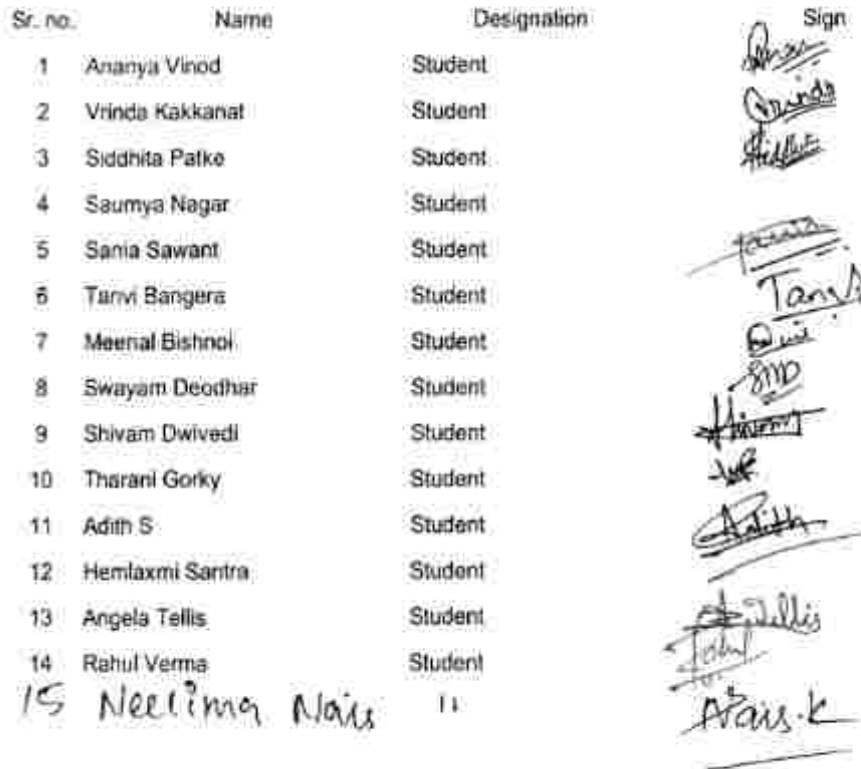 Sr. no. Name Designation Sign
1 Ananya Vinod Student
2 Vrinda Kakkanat Student Vrinda
3 Siddhita Patke Student
4 Saumya Nagar Student
5 Sania Sawant Student Sania
6 Tanvi Bangera Student Tanvi
7 Meenal Bishnoi Student
8 Swayam Deodhar Student SMD
9 Shivam Dwivedi Student Shivam
10 Tharani Gorky Student
11 Adith S Student Adith
12 Hemlaxmi Santra Student
13 Angela Tellis Student A.Tellis
14 Rahul Verma Student
15 Neelima Nair 11 Nair.K